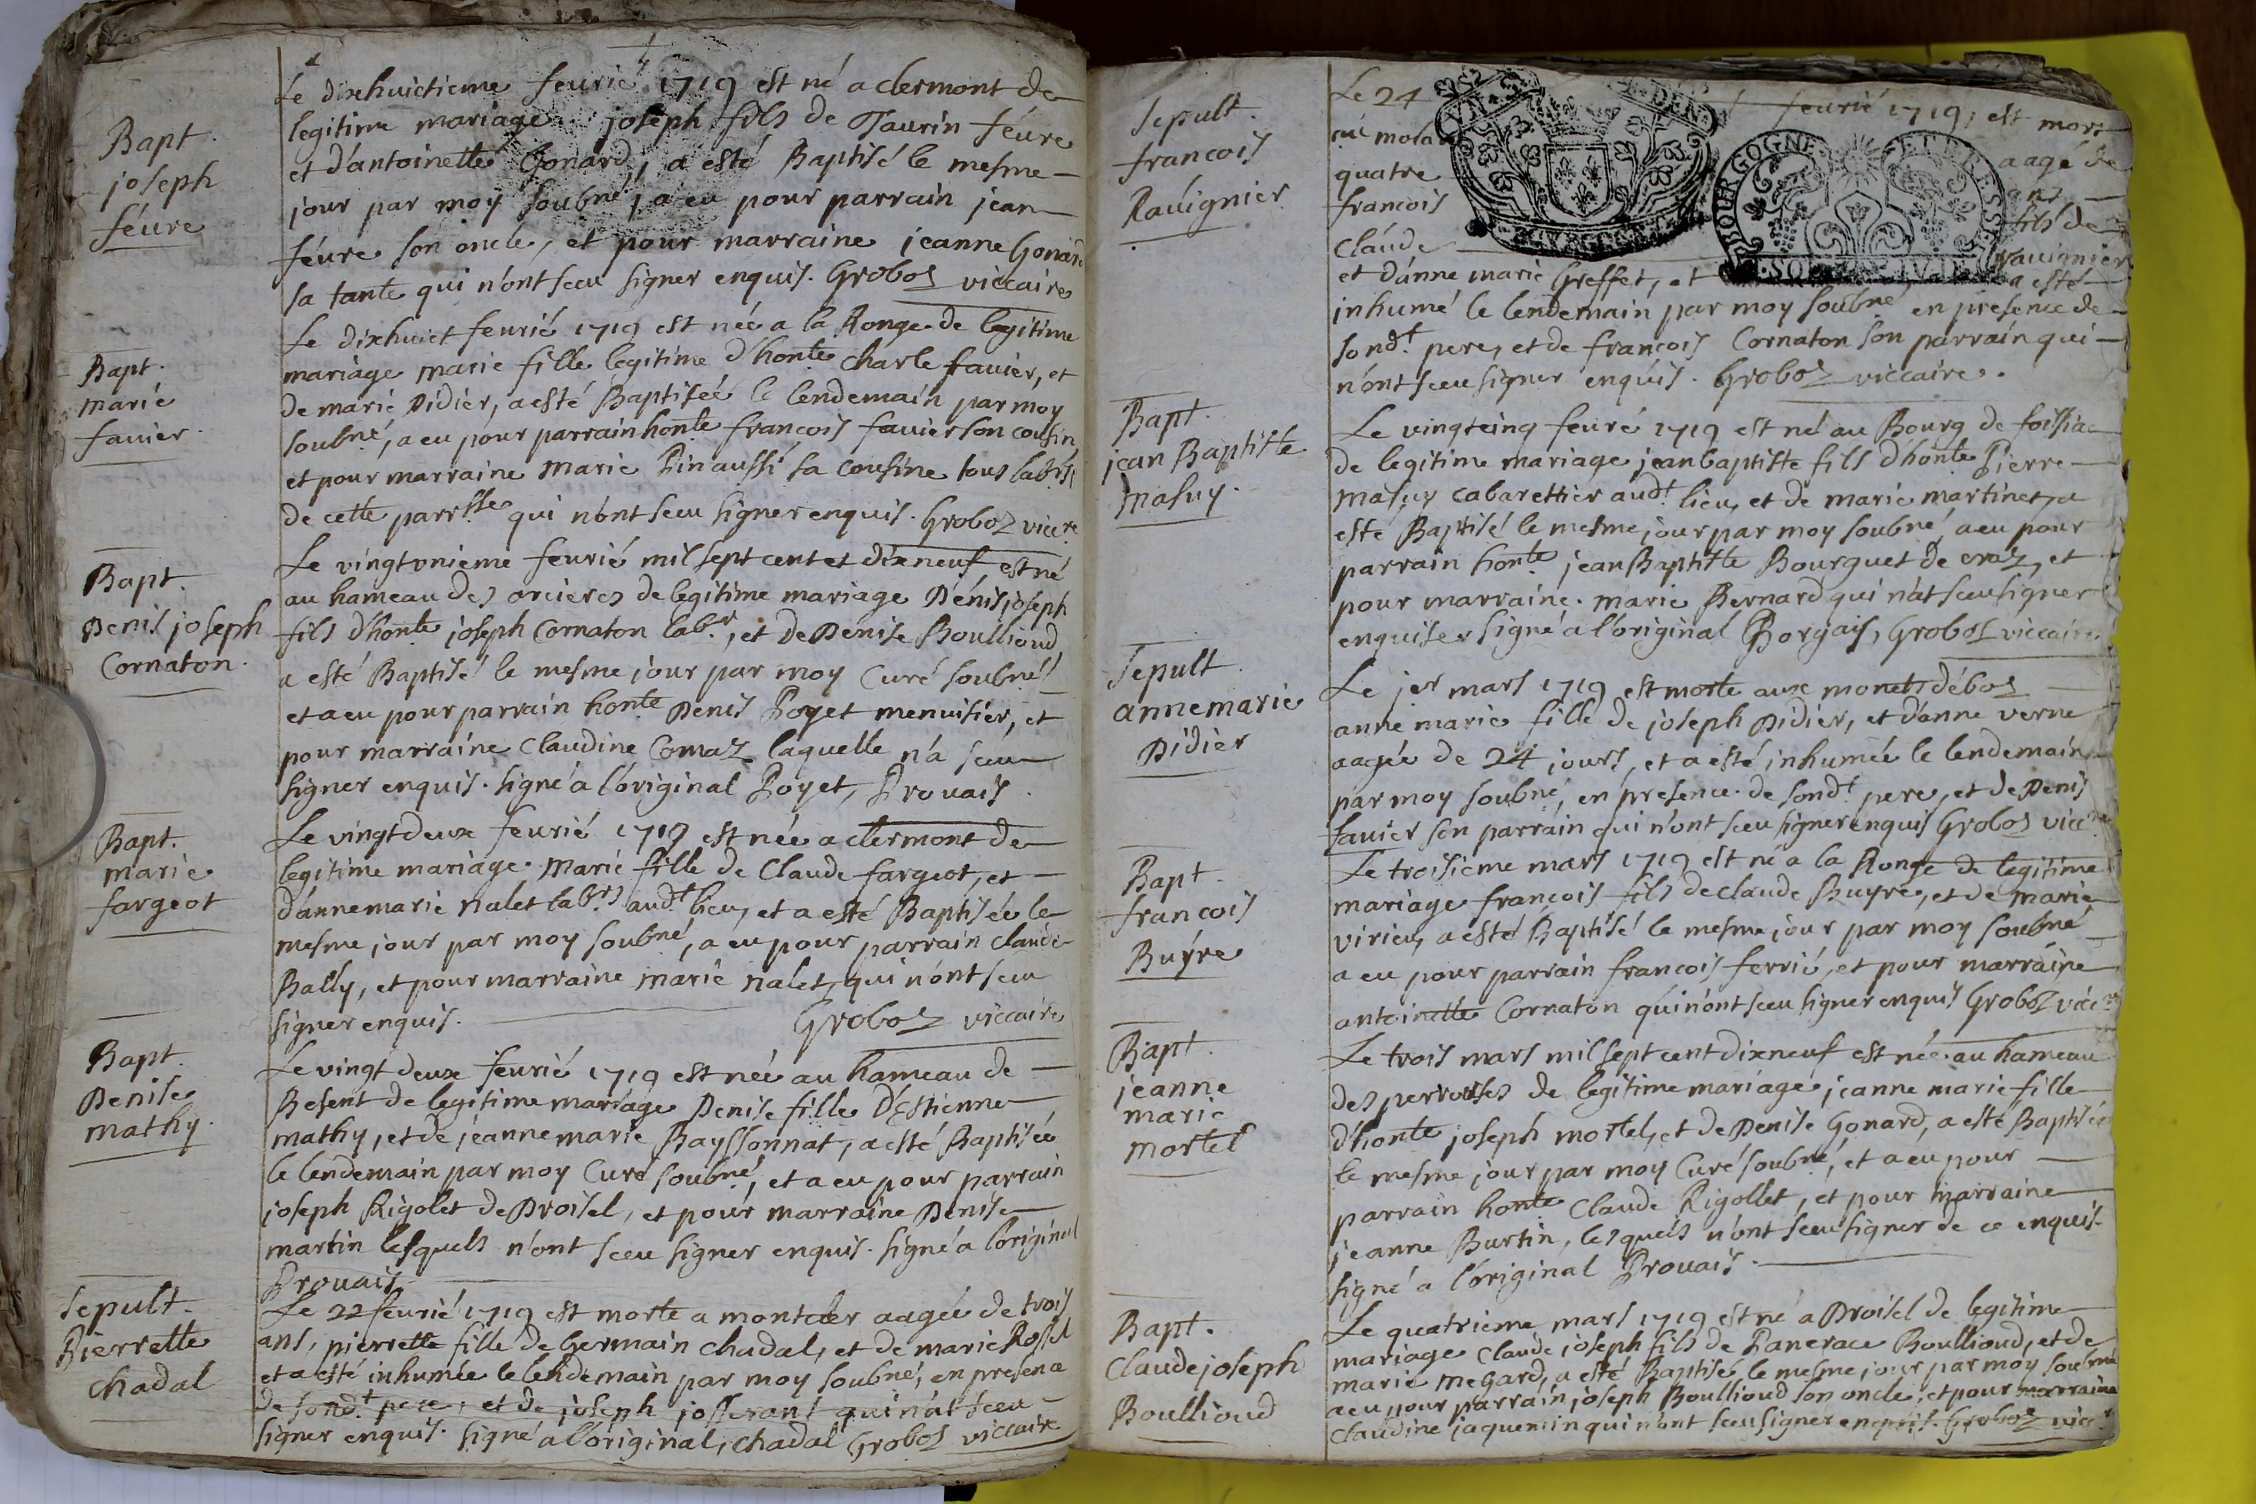 Bapt.
joseph
féure
Le dixhuictieme feurié 1719 est né a clermont de
legitime mariage joseph fils de Taurin féure
et d'antoinette Gonard, a esté Baptisé le mesme
jour par moy soubné, a eu pour parrain jean
féure son oncle, et pour marraine jeanne Gonard
sa tante qui n'ont sceu signer enquis. Groboz viccaire
Bapt.
marie
fauier.
Le dixhuict feurié 1719 est née a la Ronge de legitime
mariage marie fille legitime d'honte Charle fauier, et
de marie Didier, a esté Baptisée le lendemain par moy
soubné, a eu pour parrain honte francois fauier son cousin
et pour marraine marie Pin aussi sa cousine tous labrs
de cette parrsse qui n'ont sceu signer enquis. Groboz viccre
Bapt.
Denis joseph
Cornaton.
Le vingtvnieme feurié mil sept cent et dixneuf est né
au hameau des orcieres de legitime mariage Dénis joseph
fils d'honte joseph Cornaton labr, et de Denise Boullioud,
a esté Baptisé le mesme jour par moy Curé soubné
et a eu pour parrain honte Denis Poyet menuisier, et
pour marraine Claudine Comaz laquelle n'a sceu
signer enquis. signé a l'original Poyet, Prouais.
Bapt.
marie
fargeot
Le vingtdeux feurié 1719 est née a clermont de
legitime mariage Marie fille de Claude fargeot, et
d'annemarie nalet labrs audt lieu, et a esté Baptisée le
mesme jour par moy soubné, a eu pour parrain claude
Bally, et pour marraine marie nalet, qui n'ont sceu
signer enquis. Groboz viccaire
Bapt.
Denise
mathy.
Le vingt deux feurié 1719 est née au hameau de
Besent de legitime mariage Denise fille d'Estienne
mathy, et de jeanne marie Bayssonnat, a esté Baptisée
le lendemain par moy Curé soubné, et a eu pour parrain
joseph Rigolet de Droisel, et pour marraine Denise
martin lesquels n'ont sceu signer enquis. signé a l'original
Prouais
Sepult.
Pierrette
chadal
Le 22 feurié 1719 est morte a montcler aagée de trois
ans, pierrette fille de Germain chadal, et de marie Rossel
et a esté inhumée le lendemain par moy soubné, en presence
de sondt pere, et de joseph josserant qui n'at sceu
signer enquis. signé a l'original, chadal Groboz viccaire
Sepult.
francois
Rauignier
Le 24 feurié 1719, est mort
au molar aagé de
quatre ans
francois fils de
Claude rauignier
et d'anne marie Greffet, et a esté
inhumé le lendemain par moy soubné en presence de
sondt pere, et de francois Cornaton son parrain qui
n'ont sceu signer enquis. Groboz viccaire.
BOURGOGNE ET BRESSE
Bapt.
jean Baptiste
masuy.
Le vingtcinq feuré 1719 est né au Bourg de foissiac
de legitime mariage jean baptiste fils d'honte Pierre
masuy cabarettier audt lieu, et de marie martinet, a
esté Baptisé le mesme jour par moy soubné, a eu pour
parrain honte jean Baptiste Bourguet de craz, et
pour marraine marie Bernard qui n'at sceu signer
enquise, signé a l'original Borgais, Groboz viccaire
Sepult.
annemarie
Didier
Le jer mars 1719 est morte aux monets débos
anne marie fille de joseph Didier, et d'anne verne
aagée de 24 jours, et a esté inhumée le lendemain
par moy soubné, en presence de sondt pere, et de Denis
fauier son parrain qui n'ont sceu signer enquis Groboz vicc
Bapt.
francois
Buyre
Le troisieme mars 1719 est né a la Ronge de legitime
mariage françois fils de claude Buyre, et de marie
virieu, a esté Baptisé le mesme jour par moy soubné
a eu pour parrain francois ferrié, et pour marraine
antoinette Cornaton qui n'ont sceu signer enquis Groboz vicc
Bapt.
jeanne
marie
mortel
Le trois mars mil sept cent dixneuf est née au hameau
des perrouses de legitime mariage jeanne marie fille
d'honte joseph mortel, et de Denise Gonard, a esté Baptisée
le mesme jour par moy Curé soubné, et a eu pour
parrain honte Claude Rigollet, et pour marraine
jeanne Burtin, lesquels n'ont sceu signer de ce enquis.
signé a l'original Prouais.
Bapt.
Claude joseph
Boullioud
Le quatrieme mars 1719 est né a Droisel de legitime
mariage Claude joseph fils de Pancrace Boullioud, et de
marie megard, a esté Baptisé le mesme jour par moy soubné
a eu pour parrain joseph Boullioud son oncle, et pour marraine
Claudine jaquemin qui n'ont sceu signer enquis. Groboz vicc